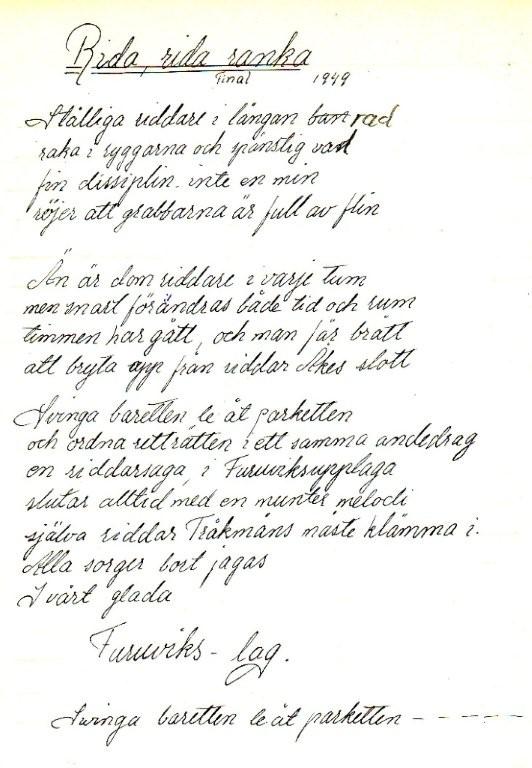 Rida, rida ranka
Final 1949
Ståtliga riddare i långan ban rad
raka i ryggarna och spänstig vad
fin dissiplin. inte en min
röjer att grabbarna är full av flin
Än är dom riddare i varje tum
men snart förändras både tid och rum
timmen har gått, och man får brått
att bryta upp från riddar Åkes slott
Svinga baretten le åt parketten
och ordna retträtten i ett samma andedrag
en riddarsaga, i Furuviksupplaga
slutar alltid med en munter melodi
själva riddar Tråkmåns måste klämma i.
Alla sorger bort jagas
I vårt glada
Furuviks - lag.
Svinga baretten le åt parketten - - - - - -